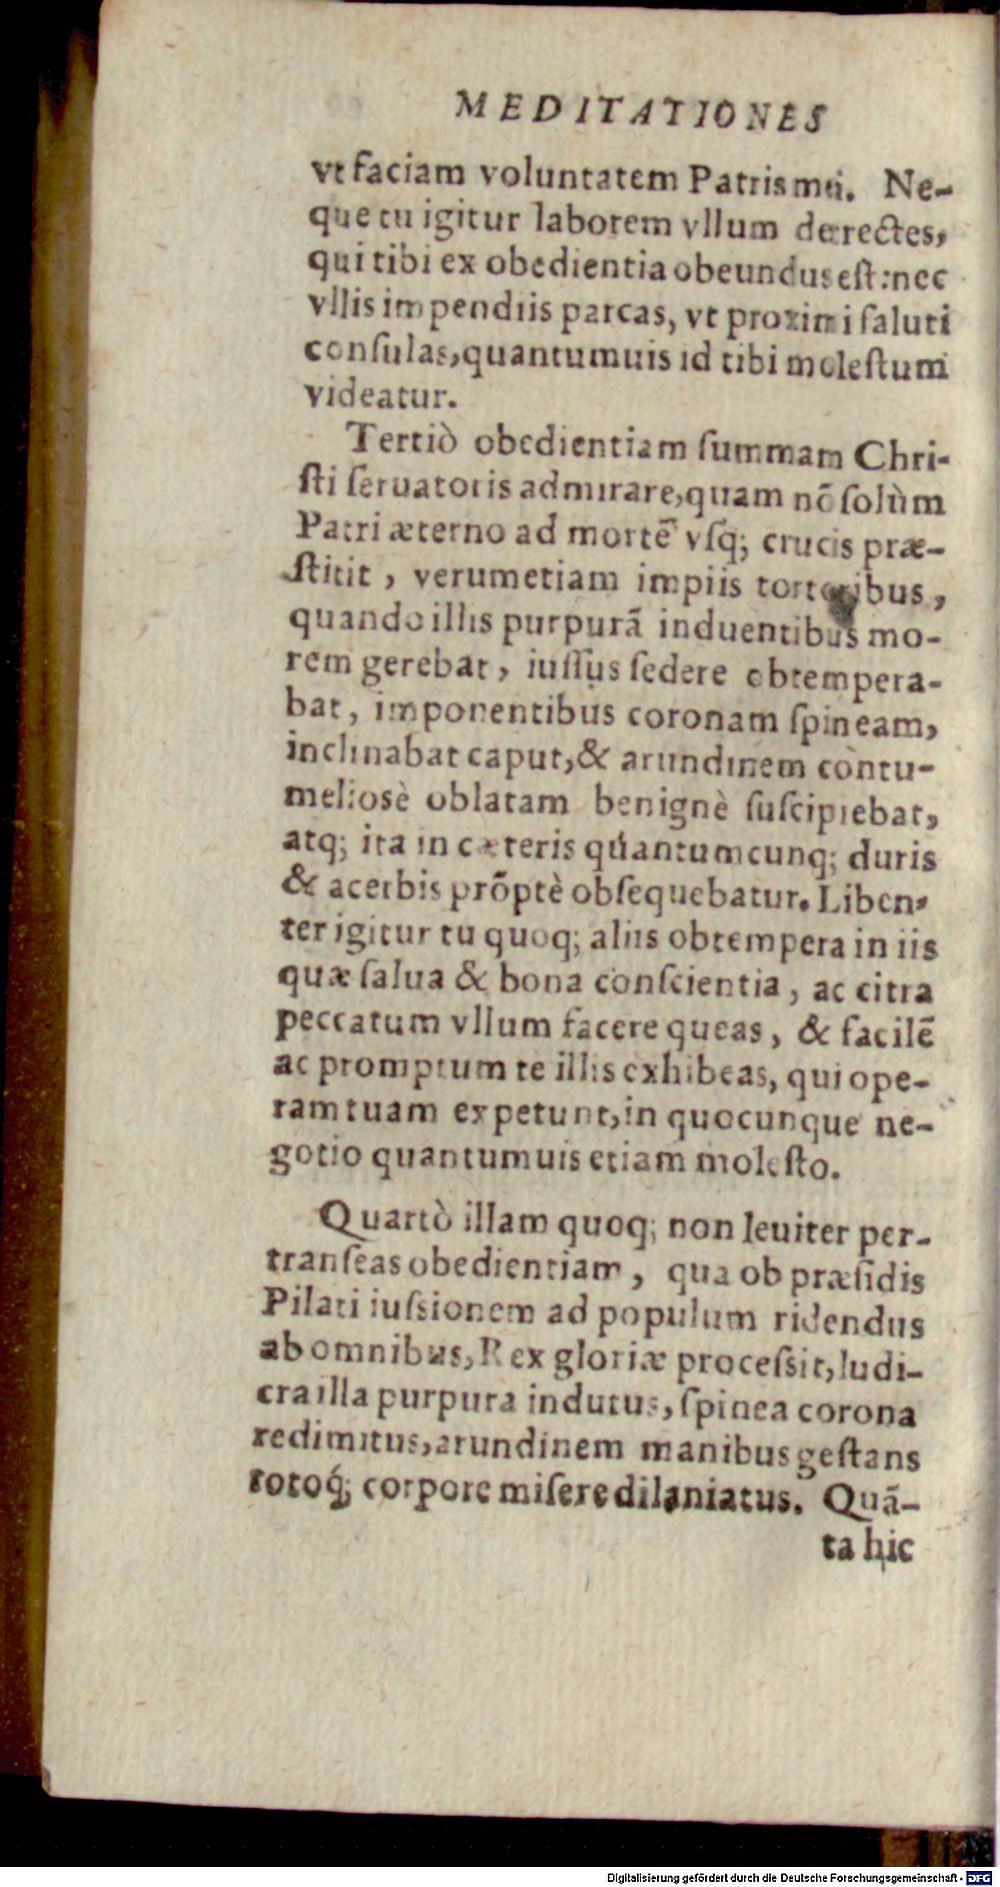 MEDITATIONES
vt faciam voluntatem Patris mei. Ne-
que tu igitur laborem vllum detrectes,
qui tibi ex obedientia obeundus est: nec
vllis impendiis parcas, vt proximi saluti
consulas, quantumuis id tibi molestum
videatur.
Tertiò obedientiam summam Chri-
sti seruatoris admirare, quam nõ solùm
Patri æterno ad mortẽ vsq; crucis præ-
stitit, verumetiam impiis tortoribus,
quando illis purpurã induentibus mo-
rem gerebat, iussus sedere obtempera-
bat, imponentibus coronam spineam,
inclinabat caput, & arundinem contu-
meliosè oblatam benignè suscipiebat,
atq; ita in cæteris quantumcunq; duris
& acerbis prõptè obsequebatur. Liben-
ter igitur tu quoq; aliis obtempera in iis
quæ salua & bona conscientia, ac citra
peccatum vllum facere queas, & facilẽ
ac promptum te illis exhibeas, qui ope-
ram tuam expetunt, in quocunque ne-
gotio quantumuis etiam molesto.
Quartò illam quoq; non leuiter per-
transeas obedientiam, qua ob præsidis
Pilati iussionem ad populum ridendus
ab omnibus, Rex gloriæ processit, ludi-
cra illa purpura indutus, spinea corona
redimitus, arundinem manibus gestans
totoq́; corpore misere dilaniatus. Quã-
ta hic
Digitalisierung gefördert durch die Deutsche Forschungsgemeinschaft - DFG